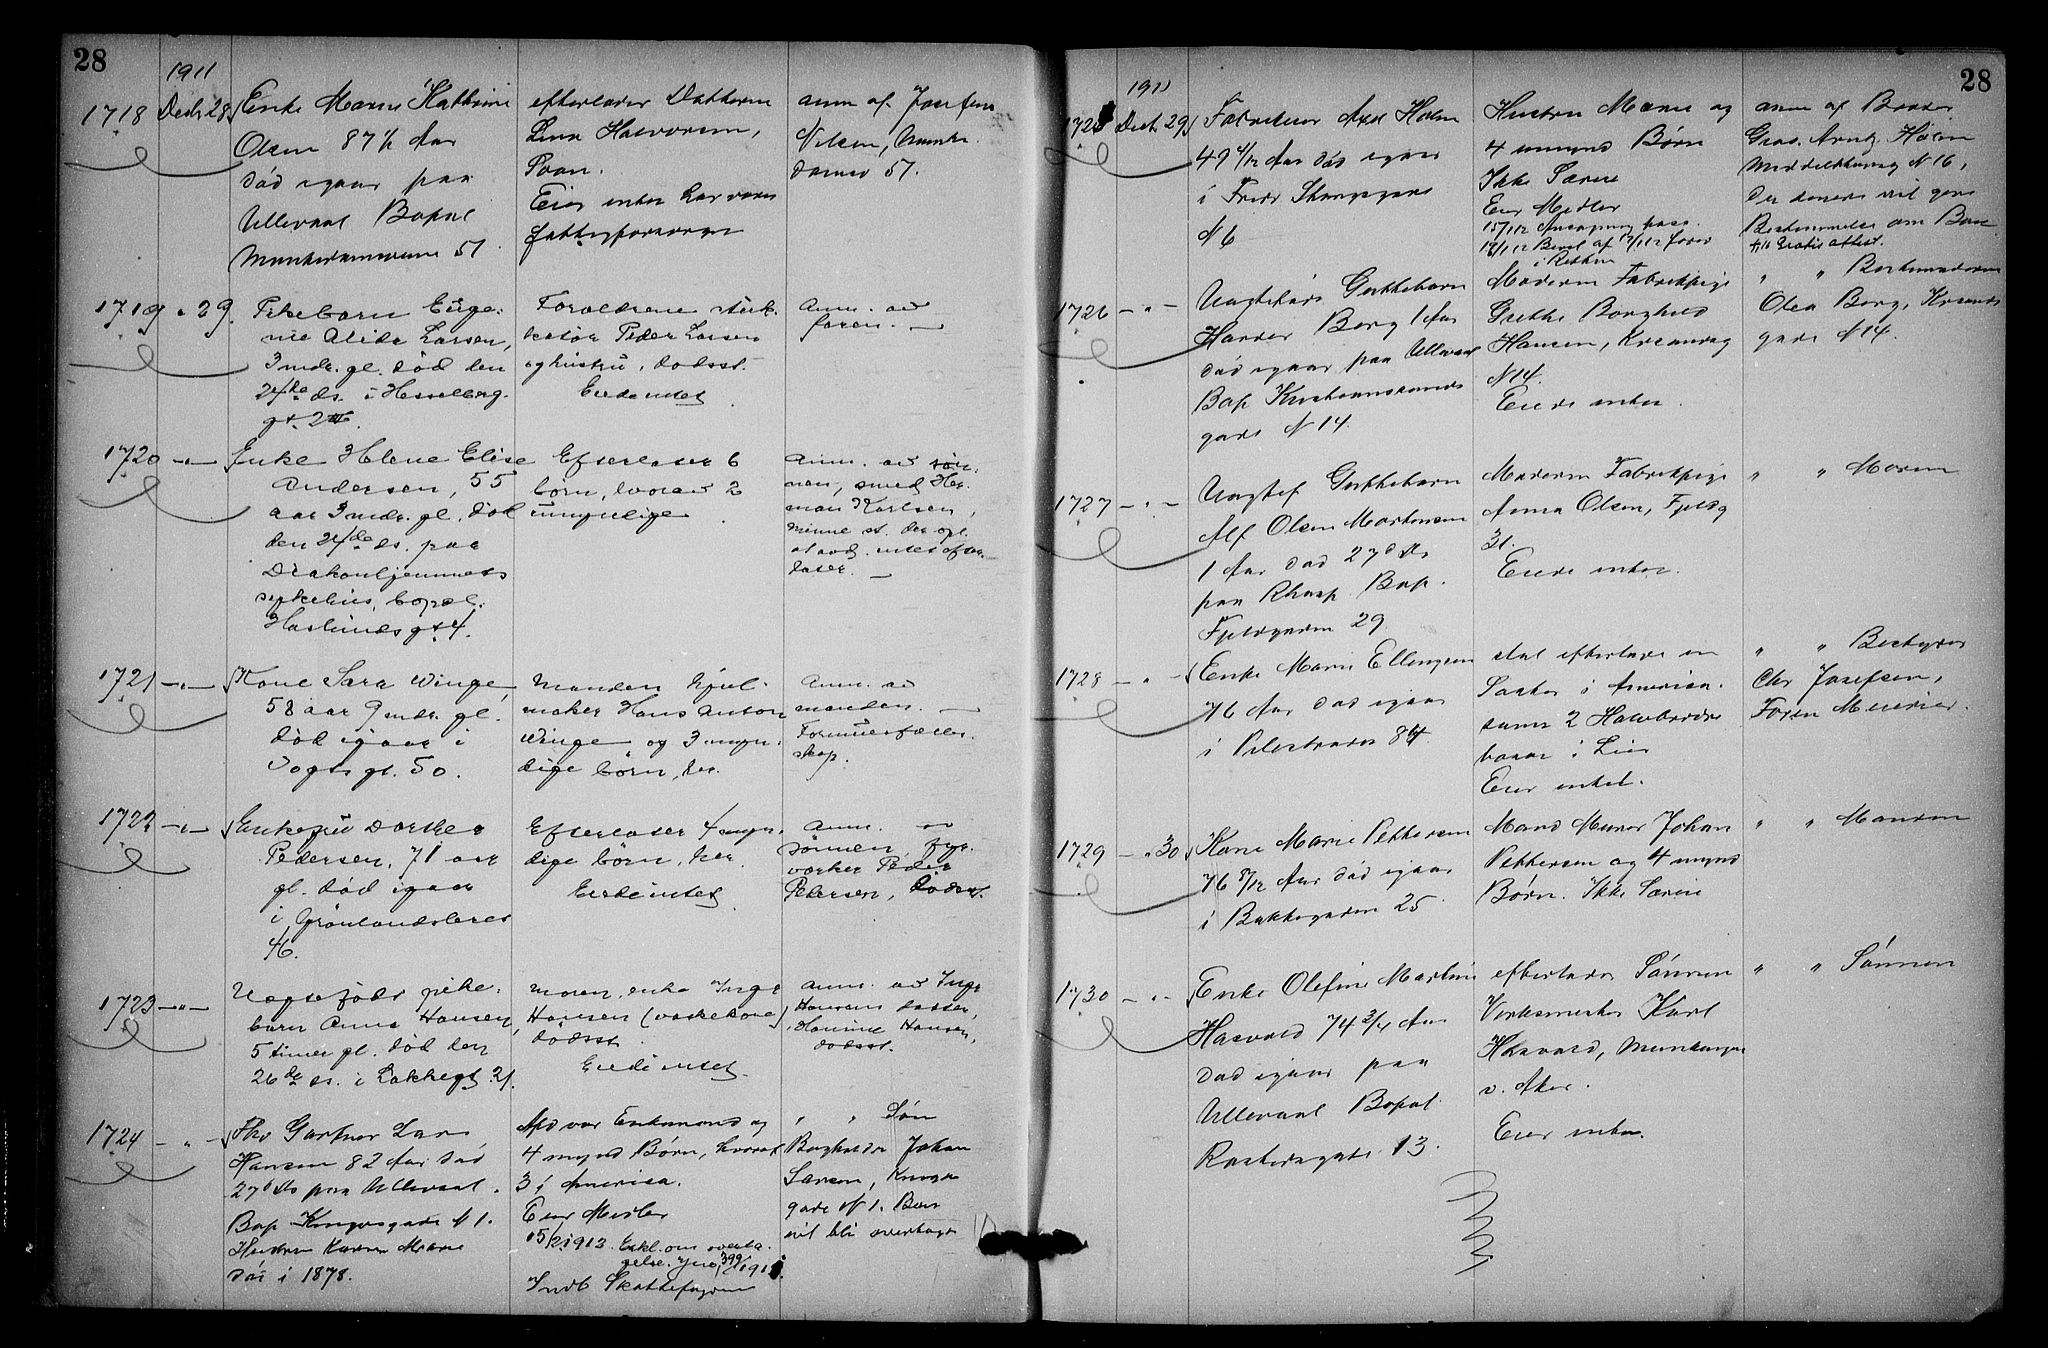 28
1911
1718 Decb 28. Enke Maren Kathrine
Olsen 87½ Aar
død igaar paa
Ullevaal Bopæl
Munkedamsveien 51
efterlader Datteren
Lina Halvorsen,
Eier intet har været
fattigforsorgen
anm af Josefine
Nilsen, Munke
damsv 51.
1719 " 29. Pikebarn Euge-
nie Alida Larsen,
3 mdr. gl. død den
24de ds. i Hesselberg.
gt.
Forældrene stuk-
katør Peder Larsen
og hustru, dødsst.
Eiede intet
Anm. av
faren. —
1720 -"- Enke Helene Elise
Andersen, 55
aar 3 mdr. gl. død
den 24de ds. paa
Diakonhjemmets
sykehus, bopæl.
Haslunds gt 4.
Efterlater 6
børn, hvorav 2
umyndige
Anm. av søn-
nen, smed Her-
man Karlsen,
intet efter-
later. —
1721 -"- Kone Sara Winge,
58 aar 9 mdr. gl.
død igaar i
Vogts gt. 50.
Manden hjul-
maker Hans Anton
Winge og 3 myn-
dige børn, her.
Anm. av
manden. —
Formuesfælles-
skap.
1722 -"- Enkefru Dorthea
Pedersen, 71 aar
gl. død igaar
i Grønlandsleret
46.
Efterlater 4 myn-
dige børn, her.
Eiede intet
Anm. av
sønnen, fyr-
værker Peder
Petersen, dødsst.
1723 -"- Uegtefødt pike-
barn Anna Hansen,
5 timer gl. død den
26de ds. i Lakkegt. 21.
moren, enke Inga
Hansen (vaskekone)
dødsst.
Eiede intet
Anm. av Inga
Hansens datter,
Hansine Hansen,
dødsst.
1724 -"- Fhv Gartner Lars
Hansen 82 Aar død
27d Ds paa Ullevaal.
Bop Kongensgade N 1.
Hustru Karen Marie
død i 1878.
Afd var Enkemand og
4 mynd Børn, hvoraf
3 i Amerika.
Eier Midler
15/2 1912. Erkl. om overta-
gelse.
Indb Skattefogden
" " Søn
Johan
Larsen, Kongens
gade N 1. Boet
vil bli overtaget
28
1911
1725 Decb. 29. Fabrikeier Axel Holm
49 4/12 Aar død igaar
i Fredr Stangsgade
N 6
Hustru Marie og
4 umynd Børn
Ikke Særeie
Eier Midler
i Retten
anm af Broder
Gros. Arnt Holm
Middelthunsg N 16,
Der senere vil gøre
Bestemmelse om Boet
gratis attest.
1726 -"- Uægtefødt Guttebarn
Harder Borg 1 Aar
død igaar paa Ullevaal
Bop Kristianssands
gade N 14.
Moderen Fabrikpige
Grethe Borghild
Hansen, Krsandsg
N 14.
Eiede intet.
" " Bestemoderen
Olea Borg, Krsands
gade N 14.
1727 -"- Uægtef Guttebarn
Alf Olsen Martinsen
1 Aar død 27d Ds
paa Rhosp Bop.
Fjeldgaden 29
Moderen Fabrikpige
Anna Olsen, Fjeldg
31.
Eiede intet.
" " Moren
1728 -"- Enke Marie Ellingsen
76 Aar død igaar
i Pilestrædet 84
skal efterlade en
Søster i Amerika.
samt 2 Halvbrødre
i Lier
Eier intet.
" " Bestyrer
Chr Josefsen,
1729 -" 30 Kone Marie Pettersen
76 5/12 Aar død igaar
i Bakkegaden 25
Mand Murer Johan
Pettersen og 4 mynd
Børn. Ikke Særeie
" " Manden
1730 -"- Enke Olefine Martine
Hasvold 74 3/4 Aar
død igaar paa
Ullevaal Bopæl
13.
efterlader Sønnen
Verksmester Karl
Hasvold, Munkengen
v. Aker.
Eier intet.
" " Sønnen